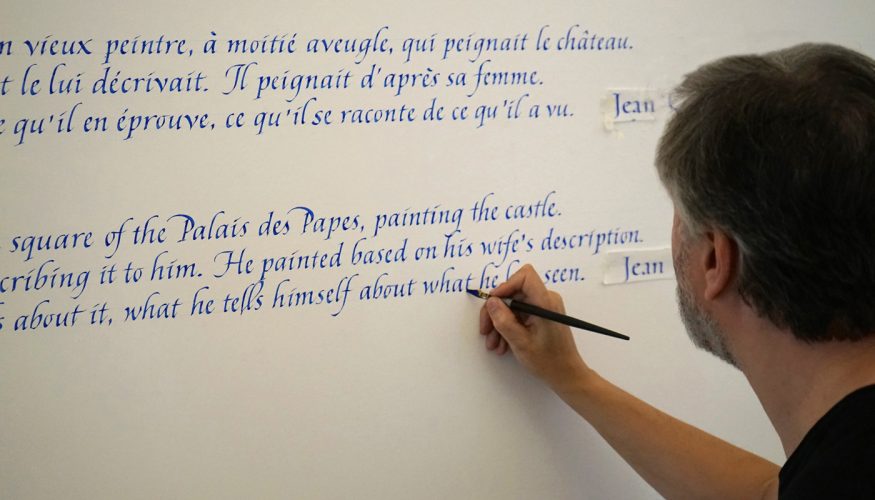 vieux peintre, à moitié aveugle, qui peignait le château.
le lui décrivait. Il peignait d'après sa femme.
qu'il en éprouve, ce qu'il se raconte de ce qu'il a vu. Jean
square of the Palais des Papes, painting the castle.
cribing it to him. He painted based on his wife's description.
about it, what he tells himself about what he seen. Jean